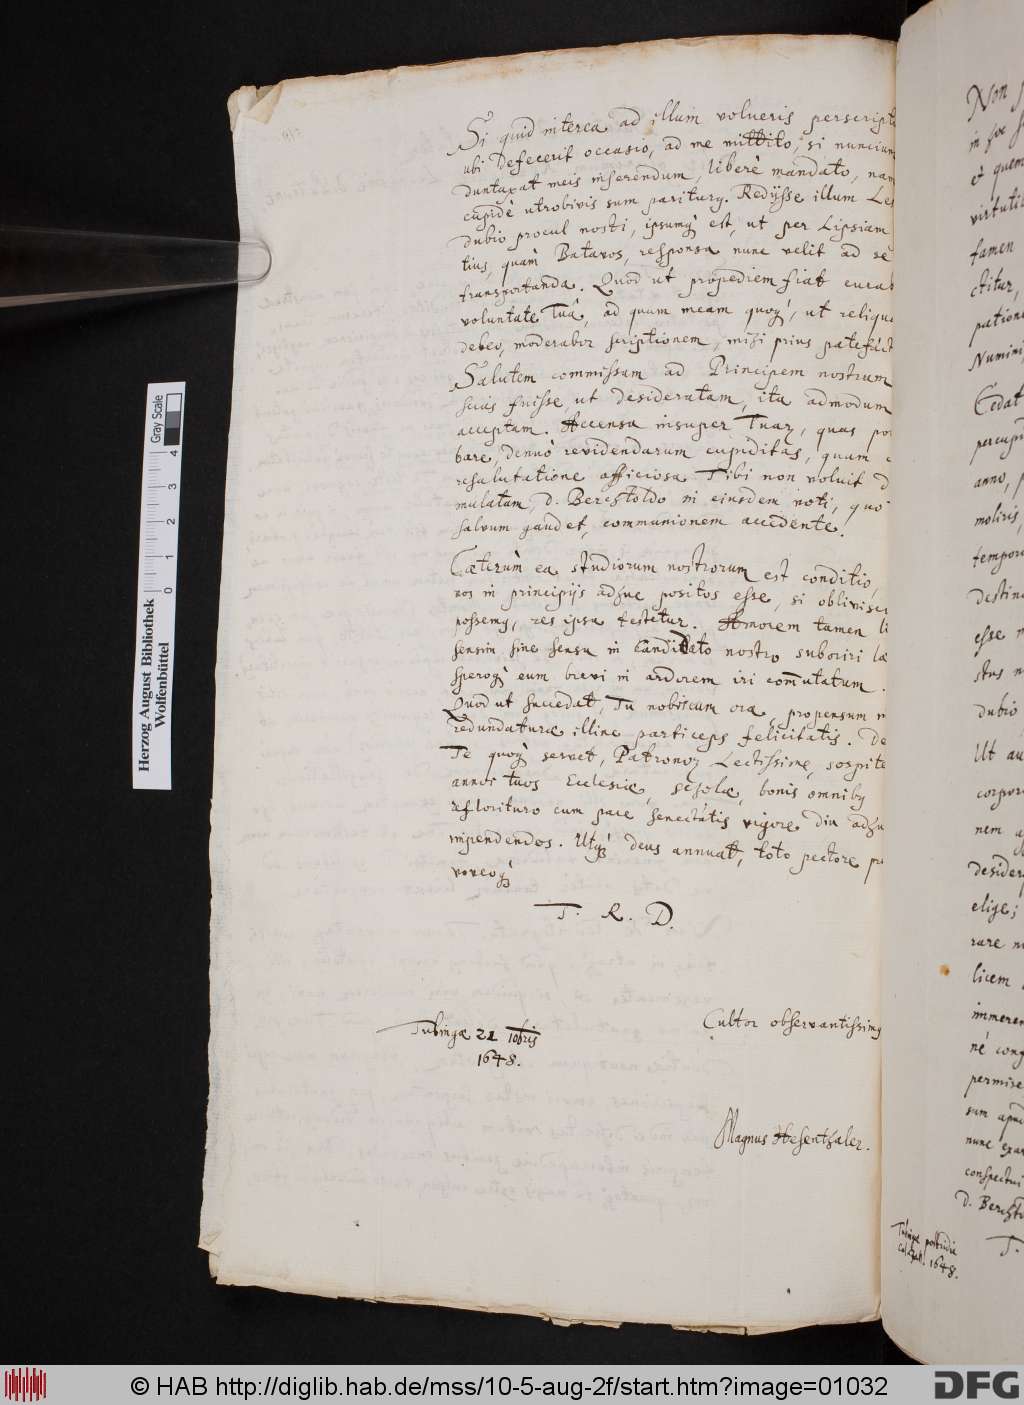 Si quid interea ad illum volueris perscript
ubi defecerit occasio, ad me mittito, si nuncium
duntaxat meis inserendum, liberè mandato, nam
cupidè utrobivis sum pariturq. Redijsse illum Le
dubio procul nosti, ipsumq́ est, ut per Lipsiam
tius, quàm Batavos, responsa nunc velit ad se
transportanda. Quod ut propediem fiat curab
voluntate Tuâ, ad quam meam quoq́, ut reliqu
debeo, moderabor scriptionem, mihi prius patefact
Salutem commissam ad Principem nostrum
scias fuisse, ut desideratam, ita admodum
acceptam. Accensa insuper Tuarz, quas po
bare, denuò revidendarum cupiditas, quam
resalutatione officiosa Tibi non voluit d
mulatam, D. Berchtoldo in eiusdem voti, quo
salvum gaudet, communionem accedente.
Cæterùm ea studiorum nostrorum est conditio,
nos in principijs adhuc positos esse, si oblivisc
possemq, res ipsa testetur. Amorem tamen li
sensim sine sensu in Candidato nostro suboriri læ
speroq́ eum brevi in ardorem iri com̄utatum.
Quod ut succedat, Tu nobiscum ora, propensum
redundaturæ illinc particeps felicitatis. De
Te quoq́ servet, Patronorz Lectissime, sospite
annos tuos Ecclesiæ, scholæ, bonis omnibq
reflorituro cum pace senectutis vigore diu adhu
impendendos. Utq́ deus annuat, toto pectore p
voveoq́
T. R. D.
Cultor observantissimq
Tubingæ 21 10bris
1648.
Magnus Hesenthaler.
Non
in hoc
et quem
virtuti
tamen
ctitur,
patione
Numini
Cedat
percup
anno,
moliris,
tempor
destin
esse
stus
dubio
Ut au
corpor
nem
desider
elige;
rare
licem
immeren
né cong
permise
sum apud
nunc exa
conspectui
D. Berchto
T.
Tubingæ postridie
1648.
Herzog August Bibliothek
Wolfenbüttel
0 1 2 3 4
Gray Scale
© HAB http://diglib.hab.de/mss/10-5-aug-2f/start.htm?image=01032
DFG